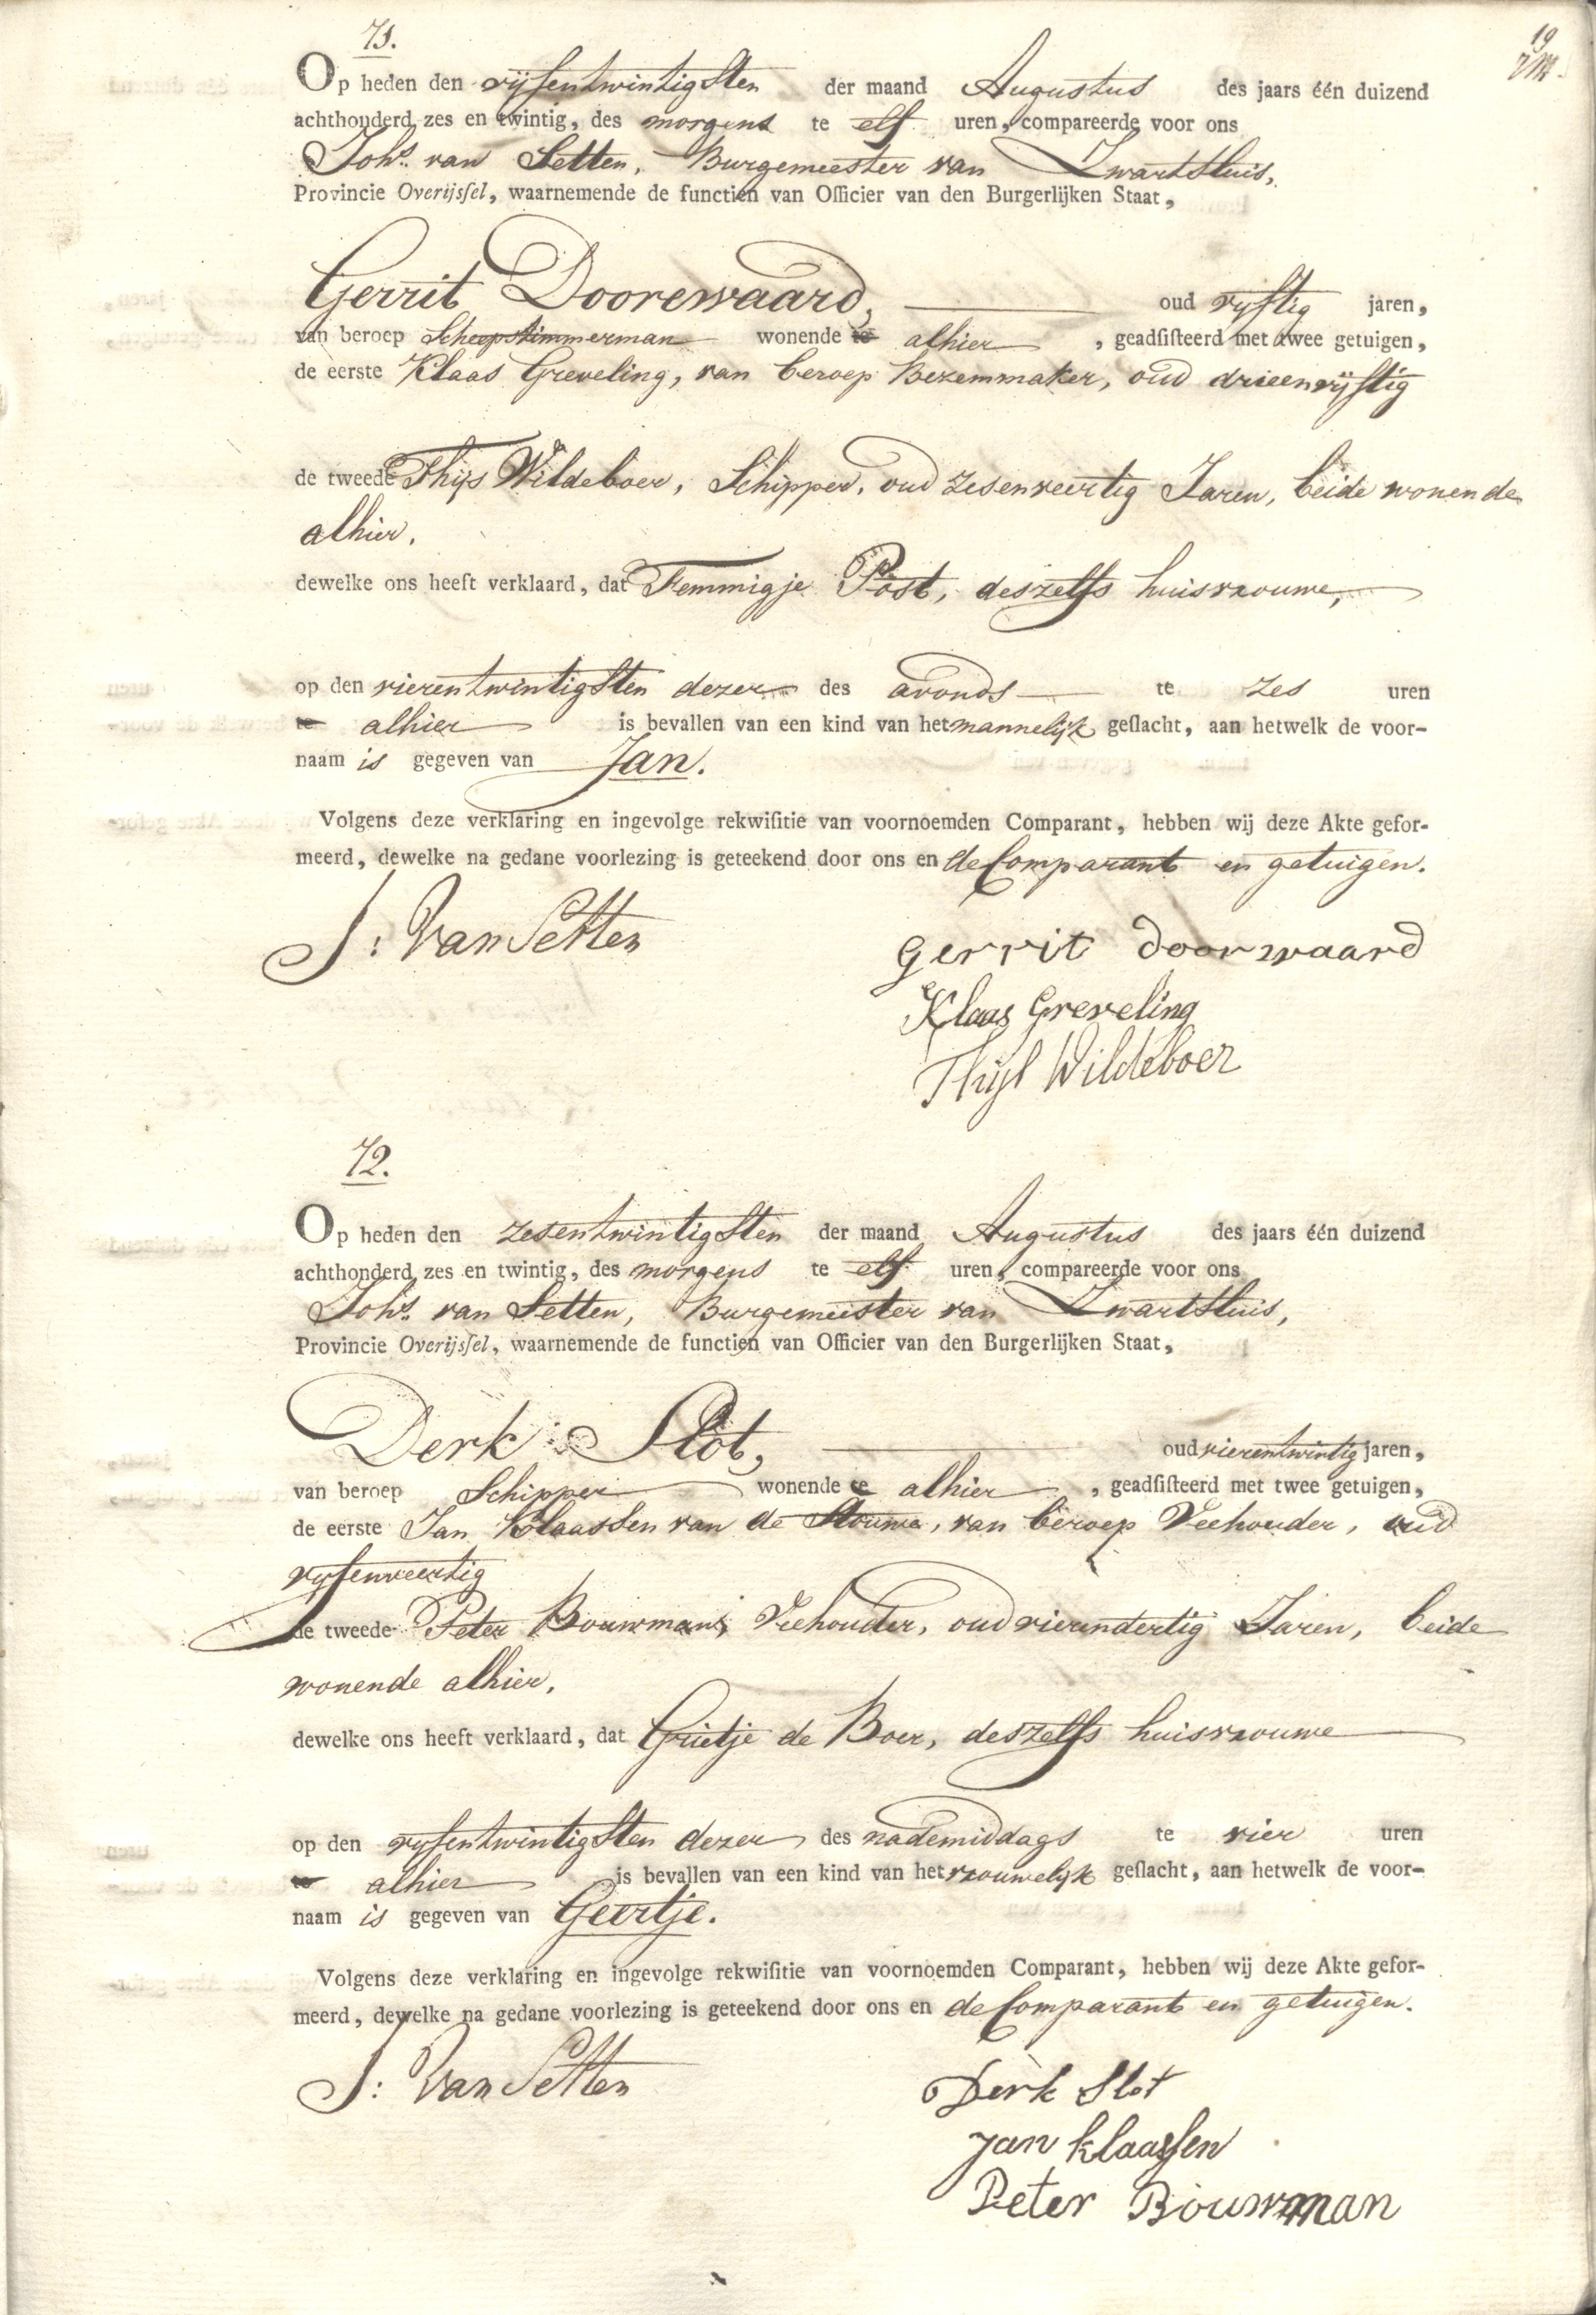 71.
19
Op heden den vijfentwintigsten der maand Augustus des jaars één duizend
achthonderd zes en twintig, des morgens te elf uren, compareerde voor ons
Johs. van Setten, Burgemeester van Zwartsluis,
Provincie Overijsſel, waarnemende de functien van Officier van den Burgerlijken Staat,
Gerrit Doorewaard, oud vyftig jaren,
van beroep Scheepstimmerman wonende te alhier, geadſiſteerd met twee getuigen,
de eerste Klaas Greveling, van beroep Bezemmaker, oud drieenvijftig
de tweede Thijs Wildeboer, Schipper, oud zesenveertig Jaren, beide wonende
alhier.
dewelke ons heeft verklaard, dat Femmigje Post, deszelfs huisvrouwe,
op den vierentwintigsten dezer des avonds te zes uren
te alhier is bevallen van een kind van het mannelijk geſlacht, aan hetwelk de voor-
naam is gegeven van Jan.
Volgens deze verklaring en ingevolge rekwiſitie van voornoemden Comparant, hebben wij deze Akte gefor-
meerd, dewelke na gedane voorlezing is geteekend door ons en de Comparant en getuigen.
J: Van Setten
Gerrit doorwaard
Klaas Greveling
Thijs Wildeboer
72.
Op heden den zesentwintigsten der maand Augustus des jaars één duizend
achthonderd zes en twintig, des morgens te elf uren, compareerde voor ons
Johs. van Setten, Burgemeester van Zwartsluis,
Provincie Overijsſel, waarnemende de functien van Officier van den Burgerlijken Staat,
Derk Slot, oud vierentwintig jaren,
van beroep Schipper wonende te alhier, geadſiſteerd met twee getuigen,
de eerste Jan Klaassen van de Stouwe, van beroep Veehouder, oud
vyfenveertig
de tweede Peter Bouwman, Veehouder, oud vierendertig Jaren, beide
wonende alhier.
dewelke ons heeft verklaard, dat Grietje de Boer, deszelfs huisvrouwe
op den vyfentwintigsten dezer des nademiddags te vier uren
te alhier is bevallen van een kind van het vrouwelyk geſlacht, aan hetwelk de voor-
naam is gegeven van Geertje.
Volgens deze verklaring en ingevolge rekwiſitie van voornoemden Comparant, hebben wij deze Akte gefor-
meerd, dewelke na gedane voorlezing is geteekend door ons en de Comparant en getuigen.
J: Van Setten
Derk Slot
Jan klaassen
Peter Bouwman